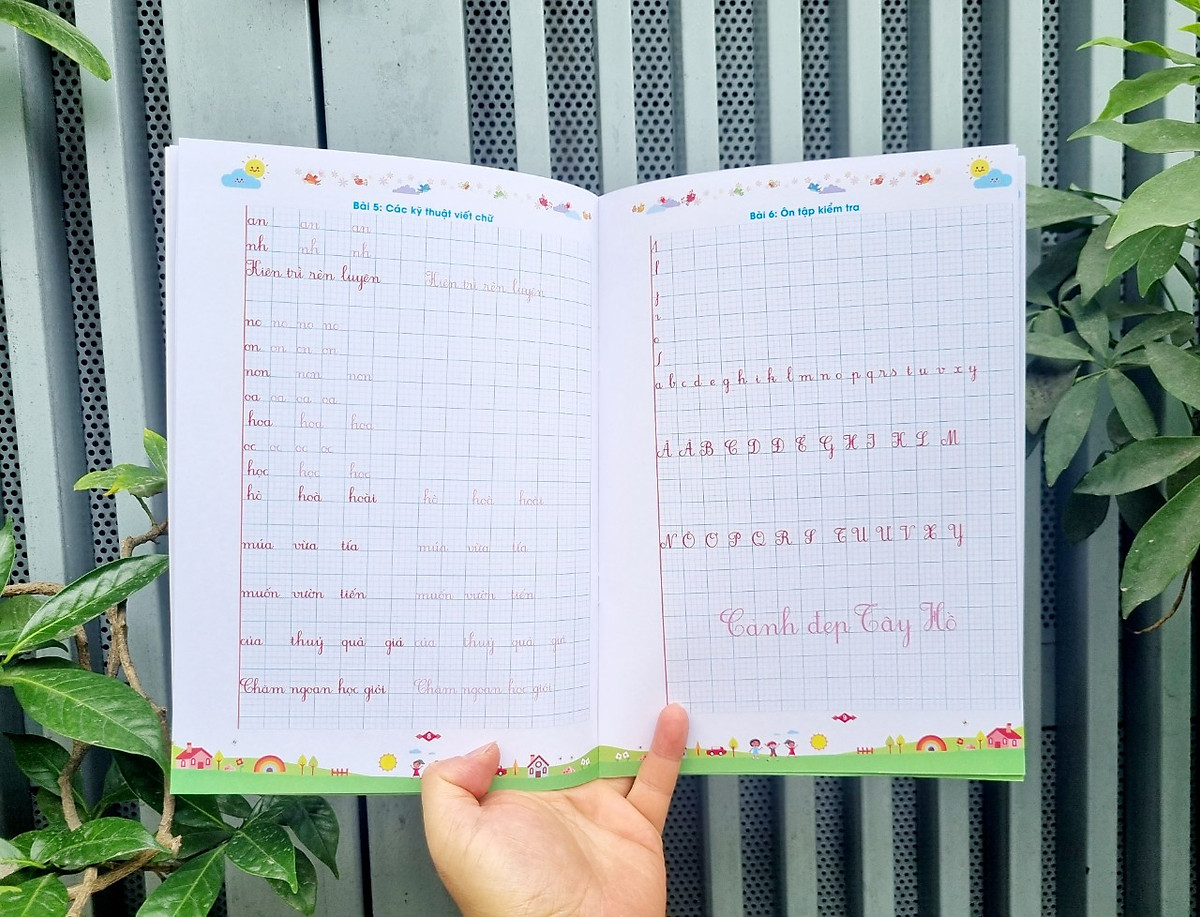 Bài 5: Các kỹ thuật viết chữ
an an an
nh nh nh
Kiên trì rèn luyện Kiên trì rèn luyện
no no no no
on on on on
non non non
oa oa oa oa
hoa hoa hoa
oc oc oc oc
học học học
hò hoà hoài hò hoà hoài
múa vừa tía múa vừa tía
muốn vườn tiến muốn vườn tiến
của thuỷ quà giá của thuỷ quà giá
Chăm ngoan học giỏi Chăm ngoan học giỏi
8
Bài 6: Ôn tập kiểm tra
a b c d e g h i k l m n o p q r s t u v x y
Ă Â B C D Đ Ê G H I K L M
N O Ơ P Q R S T U Ư V X Y
Cảnh đẹp Tây Hồ
9